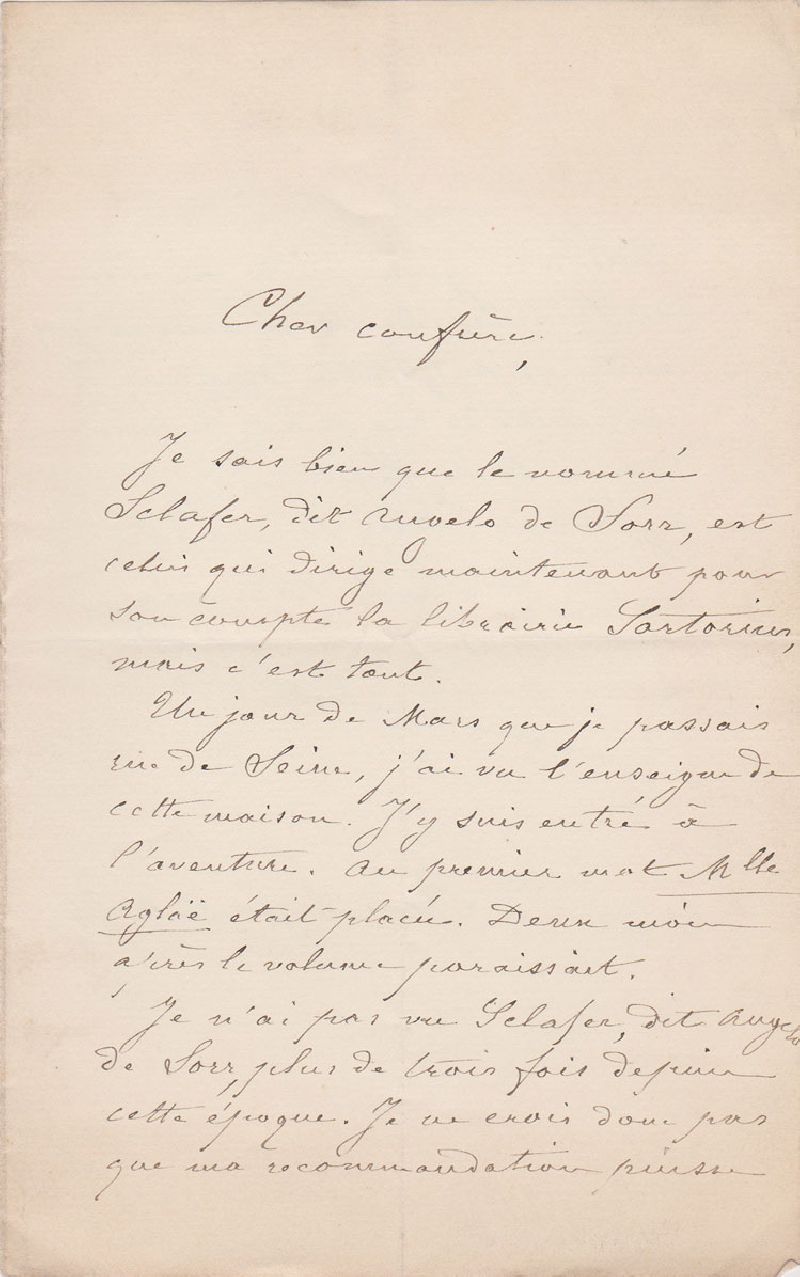 Cher confrère,
Je sais bien que le nommé
Sclafer, dit Angelo de Sorr, est
celui qui dirige maintenant pour
son compte la librairie Sartorius,
mais c'est tout.
Un jour de Mars que je passais
rue de Seine, j'ai vu l'enseigne de
cette maison. J'y suis entré à
l'aventure. Au premier mot Mlle
Aglaë était placée. Deux mois
après le volume paraissait.
Je n'ai pas vu Sclafer, dit Angelo
de Sorr, plus de trois fois depuis
cette époque. Je ne crois donc pas
que ma recommandation puisse